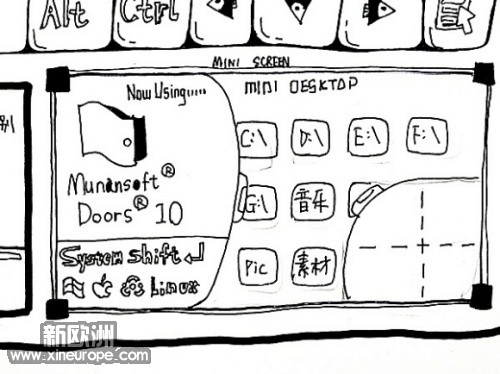 Alt
Ctrl
MINI SCREEN
Now Using......
Munansoft®
Doors® 10
System Shift
Linux
MINI DESKTOP
C:\
D:\
E:\
F:\
G:\
音乐
Pic
素材
新欧洲
www.xineurope.com